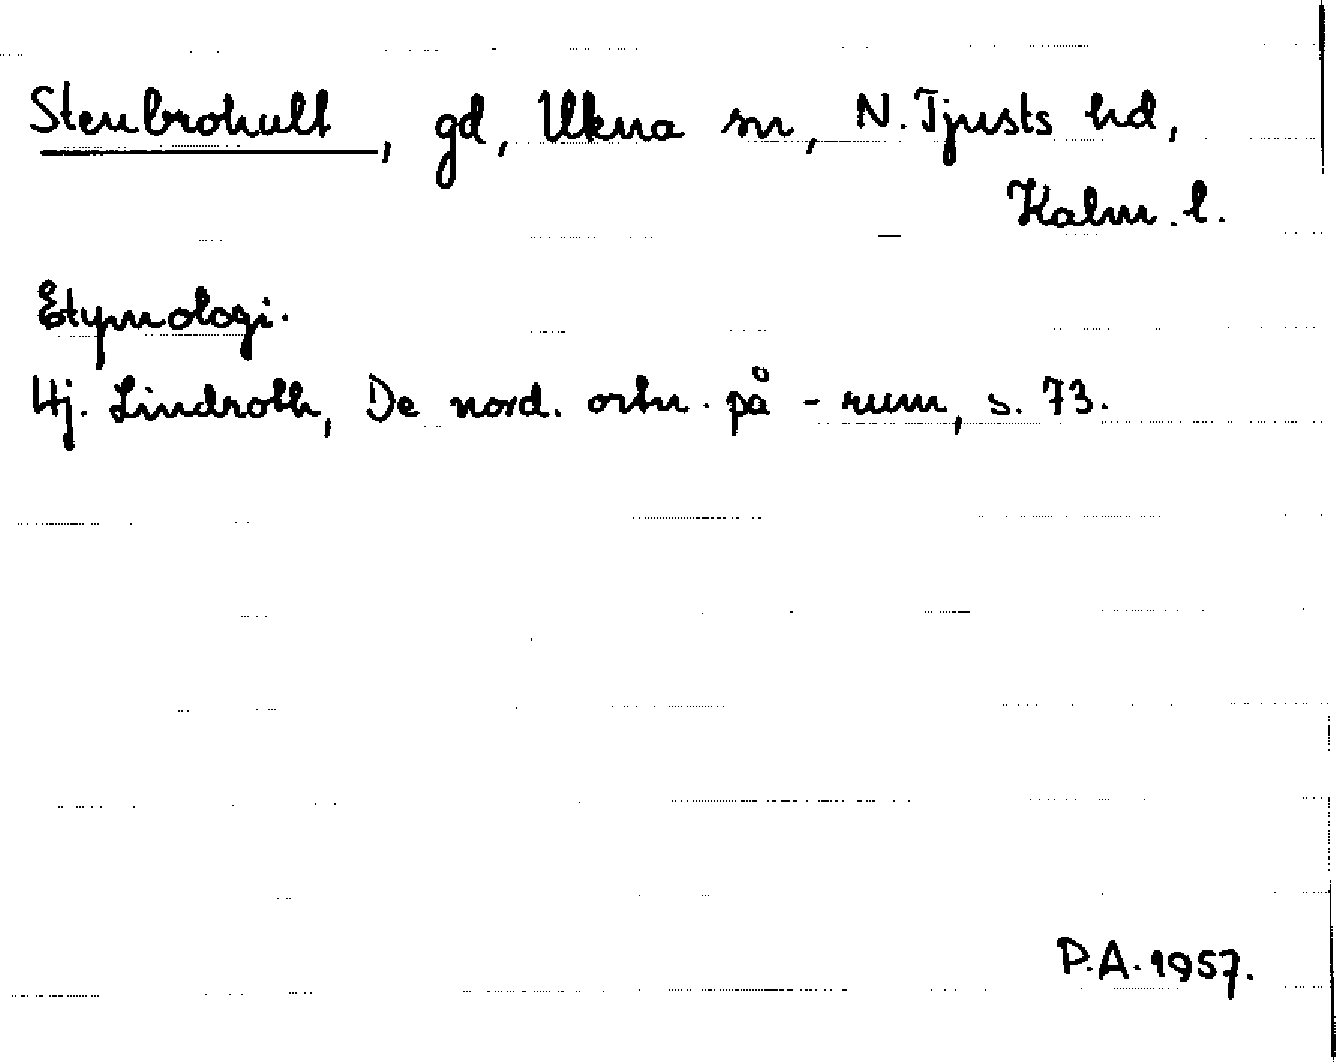 Stenbrohult, gd, Ukna sn, N. Tjusts hd,
Kalm. l.
Etymologi.
Hj. Lindroth, De nord. ortn. på -rum, s. 73.
P.A. 1957.